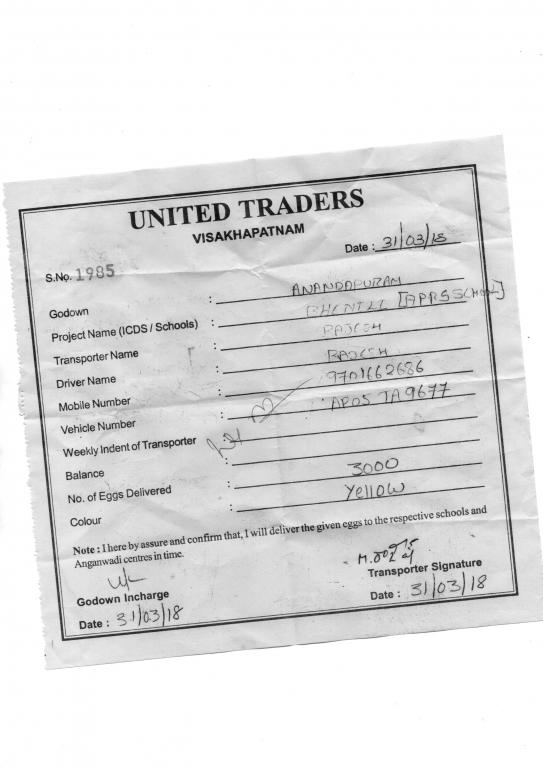 UNITED TRADERS
VISAKHAPATNAM
Date : 31/03/18
S.No. 1985
Godown : ANANDAPURAM
Project Name (ICDS / Schools) : [APRSSCHOOL]
Transporter Name : RAJESH
Driver Name : RAJESH
Mobile Number : 9701662686
Vehicle Number : AP05 TA9677
Weekly Indent of Transporter
Balance :
No. of Eggs Delivered : 3000
Colour : Yellow
Note : I here by assure and confirm that, I will deliver the given eggs to the respective schools and
Anganwadi centres in time.
Godown Incharge
Transporter Signature
Date : 31/03/18
Date : 31/03/18